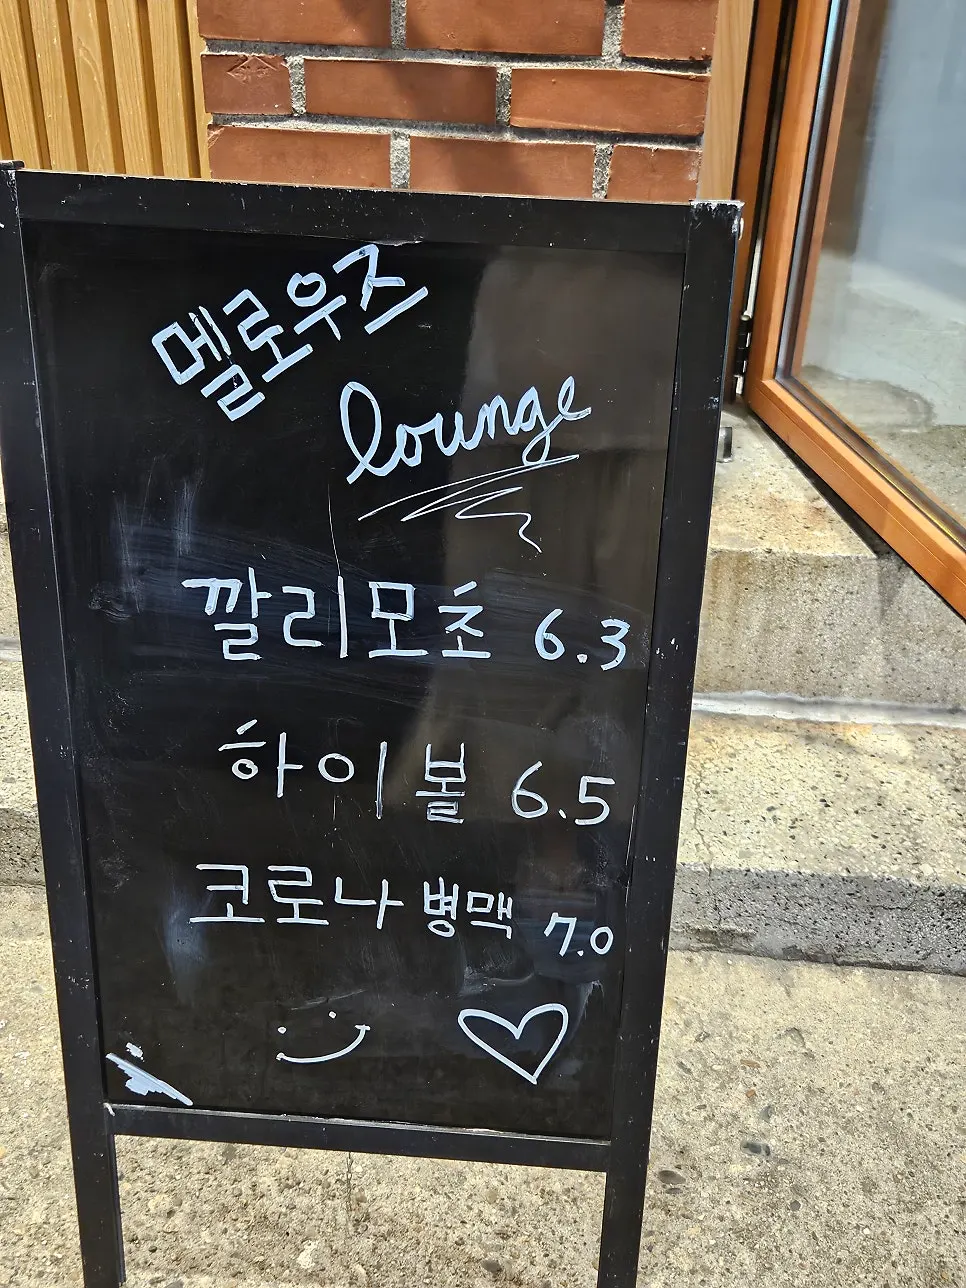 멜로우즈
lounge
깔리모초 6.3
하이볼 6.5
코로나 병맥 7.0